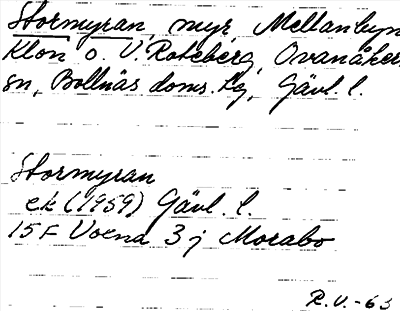 Stormyran, myr, Mellanbyn
Klon o. V. Roteberg, Ovanåkers
sn, Bollnäs doms. lg, Gävl. l.
Stormyran
ek (1959) Gävl. l.
15F Voxna 3j Morabo
R.V.-63